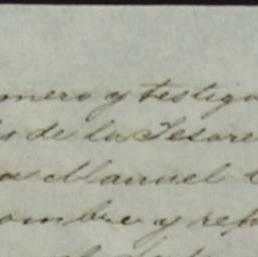 mero y testigo
de la Tesore
Manuel
ombre y rep